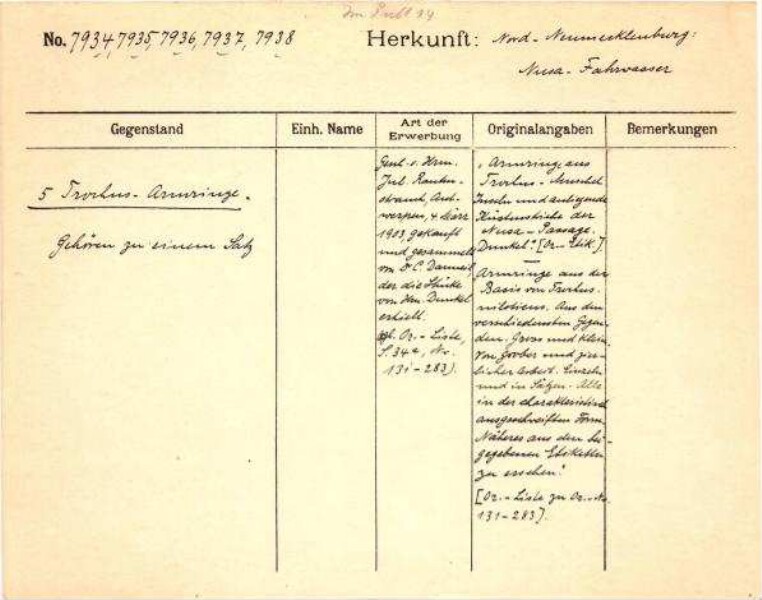 No. 7934, 7935, 7936, 7937, 7938
Herkunft: Nord-Neumecklenburg:
Nusa-Fahrwasser
Gegenstand
Einh. Name
Art der
Erwerbung
Originalangaben
Bemerkungen
5 Trochus-Armringe.
Gehören zu einem Satz
Gesch. v. Hrn.
Jul. Rauten-
strauch, Ant-
werpen, 4. März
1903, gekauft
und gesammelt
von Dr. C. Danneil,
der die Stücke
von Hrn. Dunkel
erhielt.
vgl. Or.-Liste,
S. 34a, No.
131-283).
"Armringe aus
Trochus-Muschel
Inseln und anliegende
Küstenstriche der
Nusa-Passage.
Dunkel". [Or-Etik.].
"Armringe aus der
Basis von Trochus
niloticus. Aus den
verschiedensten Gegen-
den. Gross und klein.
Von grober und zier-
licher Arbeit. Einzeln
und in Sätzen. Alle
in der charakteristisch
ausgeschweiften Form.
Näheres aus den bei-
gegebenen Etiketten
zu ersehen."
[Or.-Liste zu Or.-No.
131-283].